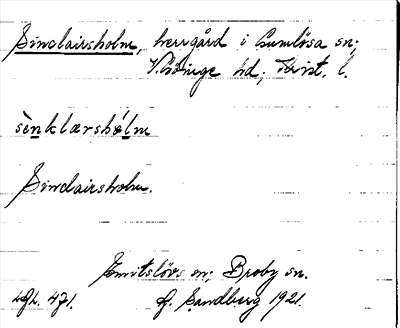 Sinclairsholm, herrgård i Gumlösa sn;
V. Göinge hd; Krist. l.
sènklærshólm
Sinclairsholm.
Emitslövs sn; Broby sn.
471. G. Sandberg 1921.